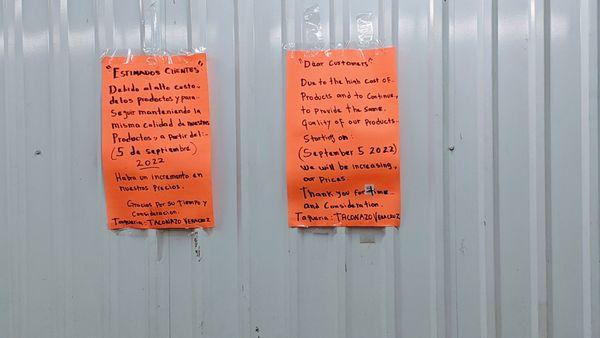 "ESTIMADOS CLIENTES"
Debido al alto costo.
de los productos y para.
Seguir manteniendo la
misma calidad de nuestros
Productos, a partir del:-
(5 de septiembre)
2022
Habra un incremento en
nuestros Precios.
Gracias Por su Tiempo y
Consideracion.
Taqueria: TACONAZO VERACRUZ
"Dear Customers"
Due to the high cost of.
Products and to Continue,
to provide the Same.
Quality of our Products.
Starting on:
(September 5 2022)
We will be increasing,
our Prices.
Thank you for Time
and Consideration.
Taqueria: TACONAZO VERACRUZ